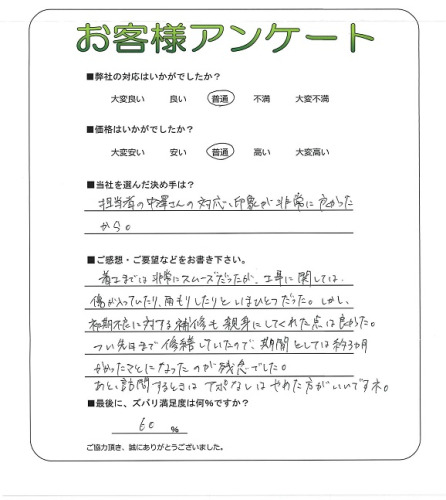 お客様アンケート
■弊社の対応はいかがでしたか？
大変良い 良い 普通 不満 大変不満
■価格はいかがでしたか？
大変安い 安い 普通 高い 大変高い
■当社を選んだ決め手は？
担当者の中澤さんの対応、印象が非常に良かった
から。
■ご感想・ご要望などをお書き下さい。
着工までは非常にスムーズだったが、工事に関しては、
傷が入っていたり、雨もりしたりといまひとつだった。しかし、
初期不良に対する補修も親身にしてくれた点は良かった。
つい先日まで修繕していたので、期間としては約3ヶ月
かかったことになったのが残念でした。
あと、訪問するときはアポなしはやめた方がいいですネ。
■最後に、ズバリ満足度は何%ですか？
60 %
ご協力頂き、誠にありがとうございました。